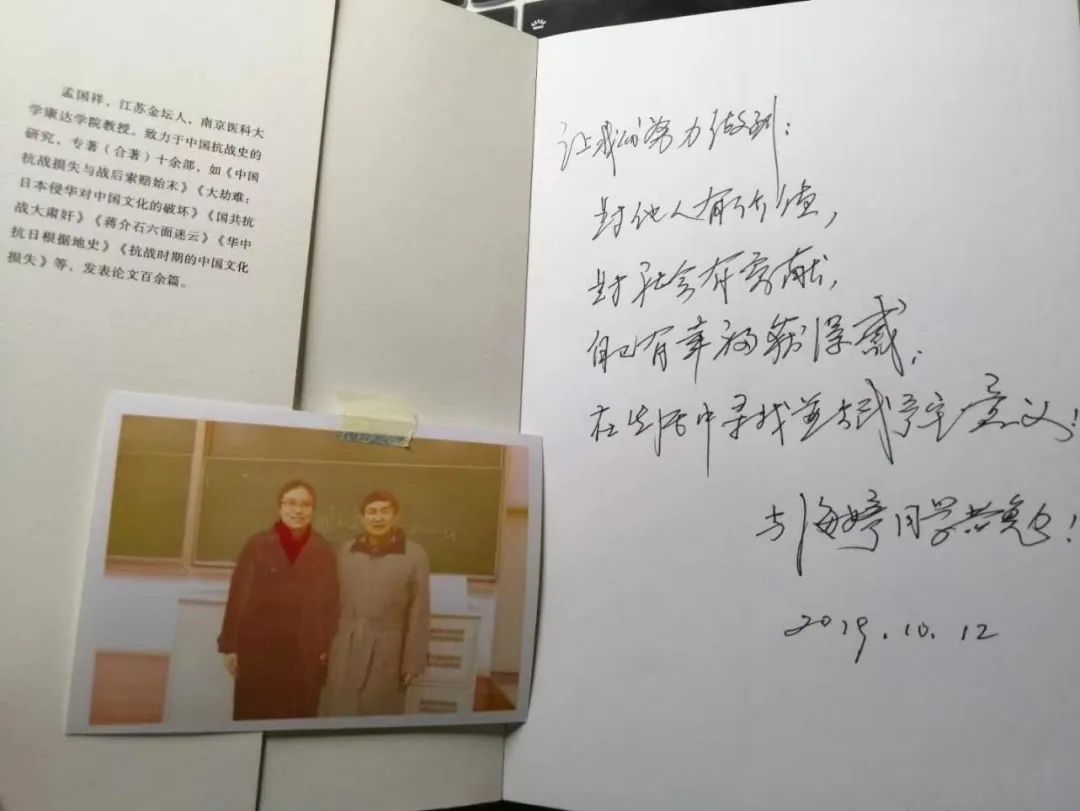 孟国祥，江苏金坛人，南京医科大
学康达学院教授。致力于中国抗战史的
研究，专著（合著）十余部，如《中国
抗战损失与战后索赔始末》《大劫难：
日本侵华对中国文化的破坏》《国共抗
战大肃奸》《蒋介石六面迷云》《华中
抗日根据地史》《抗战时期的中国文化
损失》等，发表论文百余篇。
让我们努力做到：
对他人有价值，
对社会有贡献，
自己有幸福获得感；
在生活中寻找并赋予意义！
与海婷同学共勉！
2019.10.12